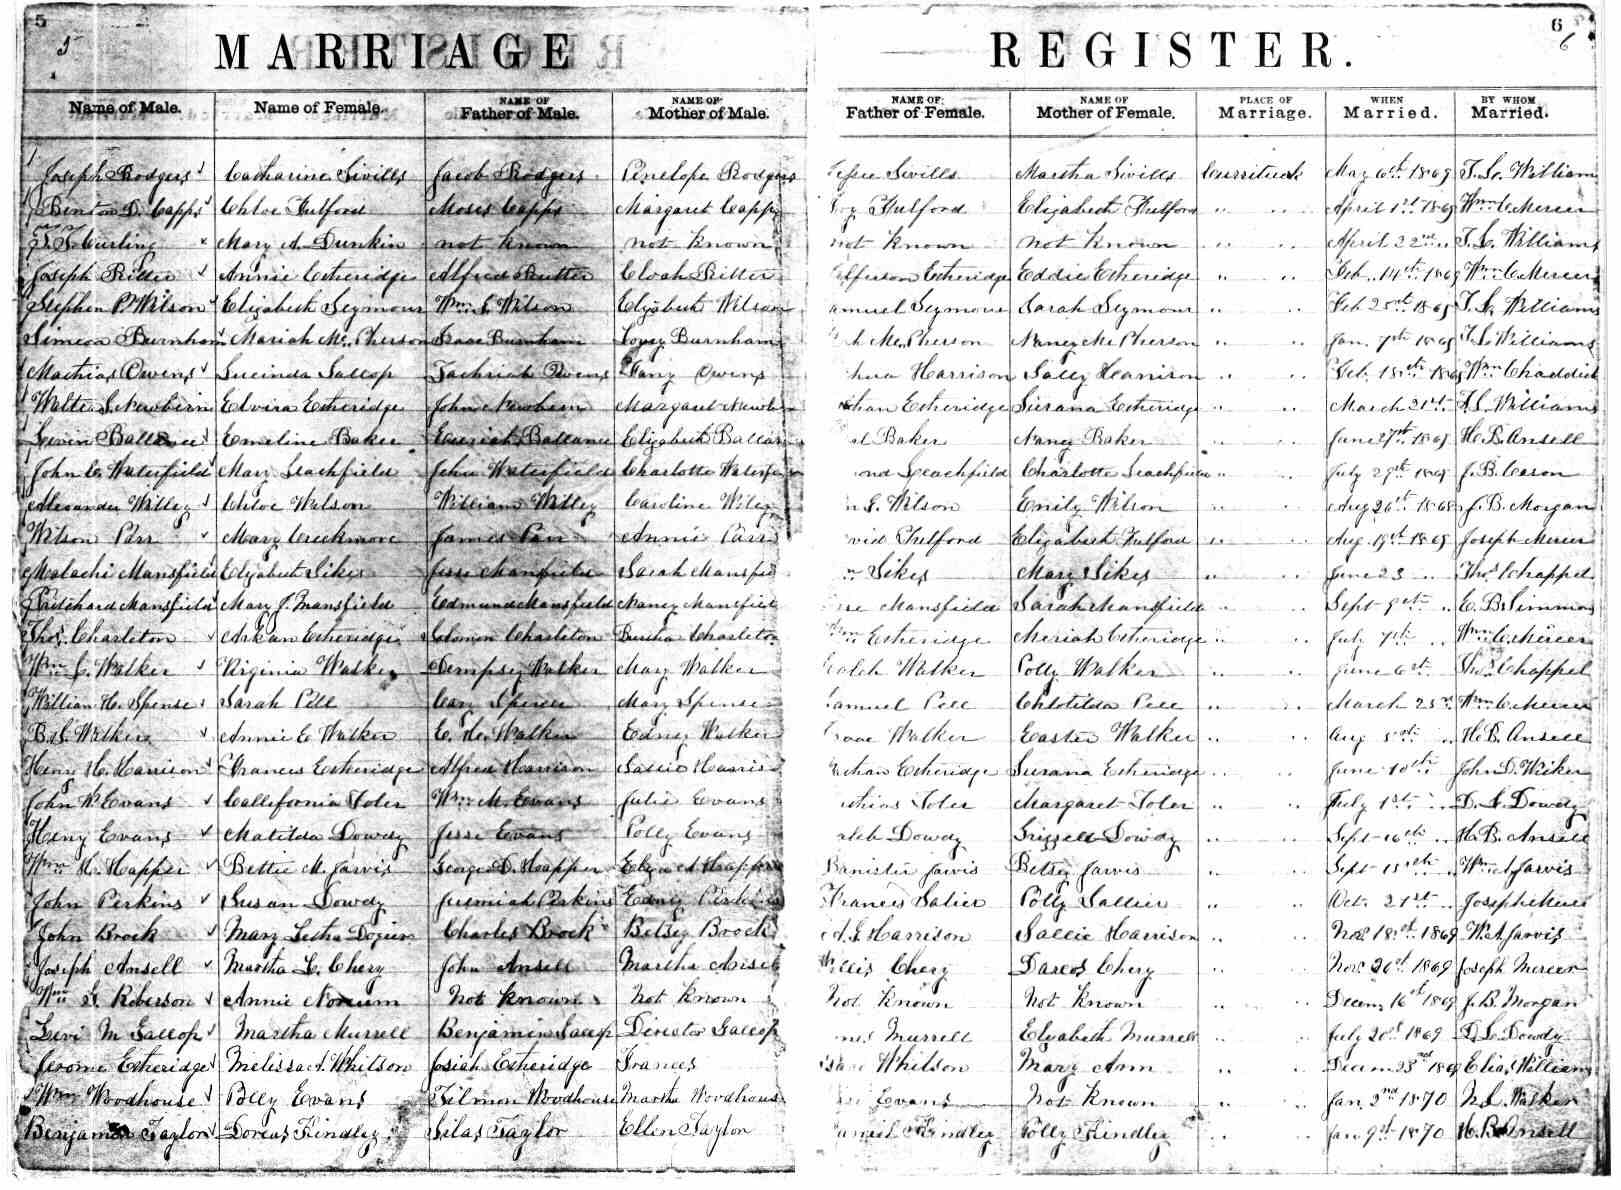 5 6
5 6
MARRIAGE REGISTER.
Name of Male. Name of Female. NAME OF Father of Male. NAME OF Mother of Male. NAME OF Father of Female. NAME OF Mother of Female. PLACE OF Marriage. WHEN Married. BY WHOM Married.
Joseph Rodgers Catharine Sivills Jacob Rodgers Penelope Rodgers Sivills Martha Sivills Currituck May 6th 1869 T. L. William
Benton D. Capps Chloe Fulford Moses Capps Margaret Capps Fulford Elizabeth Fulford " " April 1st 1869 Wm C Mercer
Curling Mary A. Dunkin not known not known not known not known " " April 22nd " T. L. Williams
Joseph Ritter Annie Etheridge Alfred Rutter Cloah Ritter Etheridge Eddie Etheridge " " Feb. 14th 1869 Wm C Mercer
Stephen P. Wilson Elizabeth Seymour Wm S Wilson Elizabeth Wilson amuel Seymour Sarah Seymour " " Feb 1869 T. L. Williams
Simeon Burnham Mariah Mc Pherson Isaac Burnham Lovey Burnham Mc Pherson Nancy Mc Pherson " " Jan. 7th 1869 T. L. Williams
Mathias Owens Lucinda Gallop Zachriah Owens Fany Owens Harrison Sally Harrison " " Feb. 18th 1869 Wm Chaddick
Walter S. Newbern Elvira Etheridge John Newbern Margaret Newbern than Etheridge Susana Etheridge " " March 21st " T. L. Williams
Levin Ballance Emeline Baker Ballance Elizabeth Ballance el Baker Nancy Baker " " June 27th 1869 H. B. Ansell
John C. Waterfield Mary Leachfield John Waterfield Charlotte Waterfield ond Leachfield Charlotte Leachfield " " July 29th 1869 J. B. Carson
Alexander Willey Chloe Wilson William Willey Caroline Willey m S. Wilson Emily Wilson " " Aug 26th 1868 J. B. Morgan
Wilson Parr Mary Creekmore James Parr Annie Parr vid Fulford Elizabeth Fulford " " Aug. 19th 1869 Joseph Mercer
Malachi Mansfield Elizabeth Sikes Jesse Mansfield Sarah Mansfield Sikes Mary Sikes " " June 23 " Thos Chappel
Pritchard Mansfield Mary J. Mansfield Edmund Mansfield Nancy Mansfield Mansfield Sarah Mansfield " " Sept 9th " E. B. Simmons
Thos. Charleton Arkan Etheridge Solomon Charleton Bertha Charleton Wm Etheridge Meriah Etheridge " " July 7th " Wm C. Mercer
Wm J. Walker Virginia Walker Dempsey Walker Mary Walker Caleb Walker Polly Walker " " June 6th Thos Chappel
William H. Spense Sarah Pell Cary Spence Mary Spense amuel Pell Chlotilda Pell " " March 23rd Wm C. Mercer
B. S. Walker Annie E Walker E. H. Walker Edney Walker Isaac Walker Easter Walker " " Aug 5th " H. B. Ansell
Heny H. Harrison Frances Etheridge Alfred Harrison Sallie Harrison Nathan Etheridge Susana Etheridge " " June 10th John D. Wicker
John W Evans Callifornia Toler Wm M. Evans Julia Evans athias Toler Margaret Toler " " July 1st " D. L. Dowdy
Heny Evans Matilda Dowdy Jesse Evans Polly Evans aleb Dowdy Grizzell Dowdy " " Sept 16th " H. B. Ansell
Wm H. Happer Bettie M. Jarvis George D. Happer Eliza A Happer Banister Jarvis Betsy Jarvis " " Sept 15th " Wm A Jarvis
John Perkins Susan Dowdy Jeremiah Perkins Edney Perkins Francis Salier Polly Sallier " " Oct. 21st " Joseph Mercer
John Brock Mary Letha Dozier Charles Brock Betsey Brock Harrison Sallie Harrison " " Nov. 18th 1869 W. A. Jarvis
Joseph Ansell Martha L. Chery John Ansell Martha Ansell Willis Chery Darcos Chery " " Nov. 20th 1869 Joseph Mercer
Wm G. Roberson Annie Norcum Not Known Not Known Not Known Not Known " " Decem 16th 1869 J. B. Morgan
Levi M Gallop Martha Murrell Benjamin Gallop Director Gallop mes Murrell Elizabeth Murrell " " July 20th 1869 D. L. Dowdy
Jerome Etheridge Melissa A. Whitson Josiah Etheridge Frances Isaac Whitson Mary Ann " " Decem 23rd 1869 Elias William
Wm Woodhouse Polly Evans Tilmon Woodhouse Martha Woodhouse Evans Not Known " " Jan. 2nd 1870 N. L. Walker
Benjamin Taylor Dorcus Findley Silas Taylor Ellen Taylor Daniel Findley Polly Findley " " Jan 9th 1870 H. B. Ansell